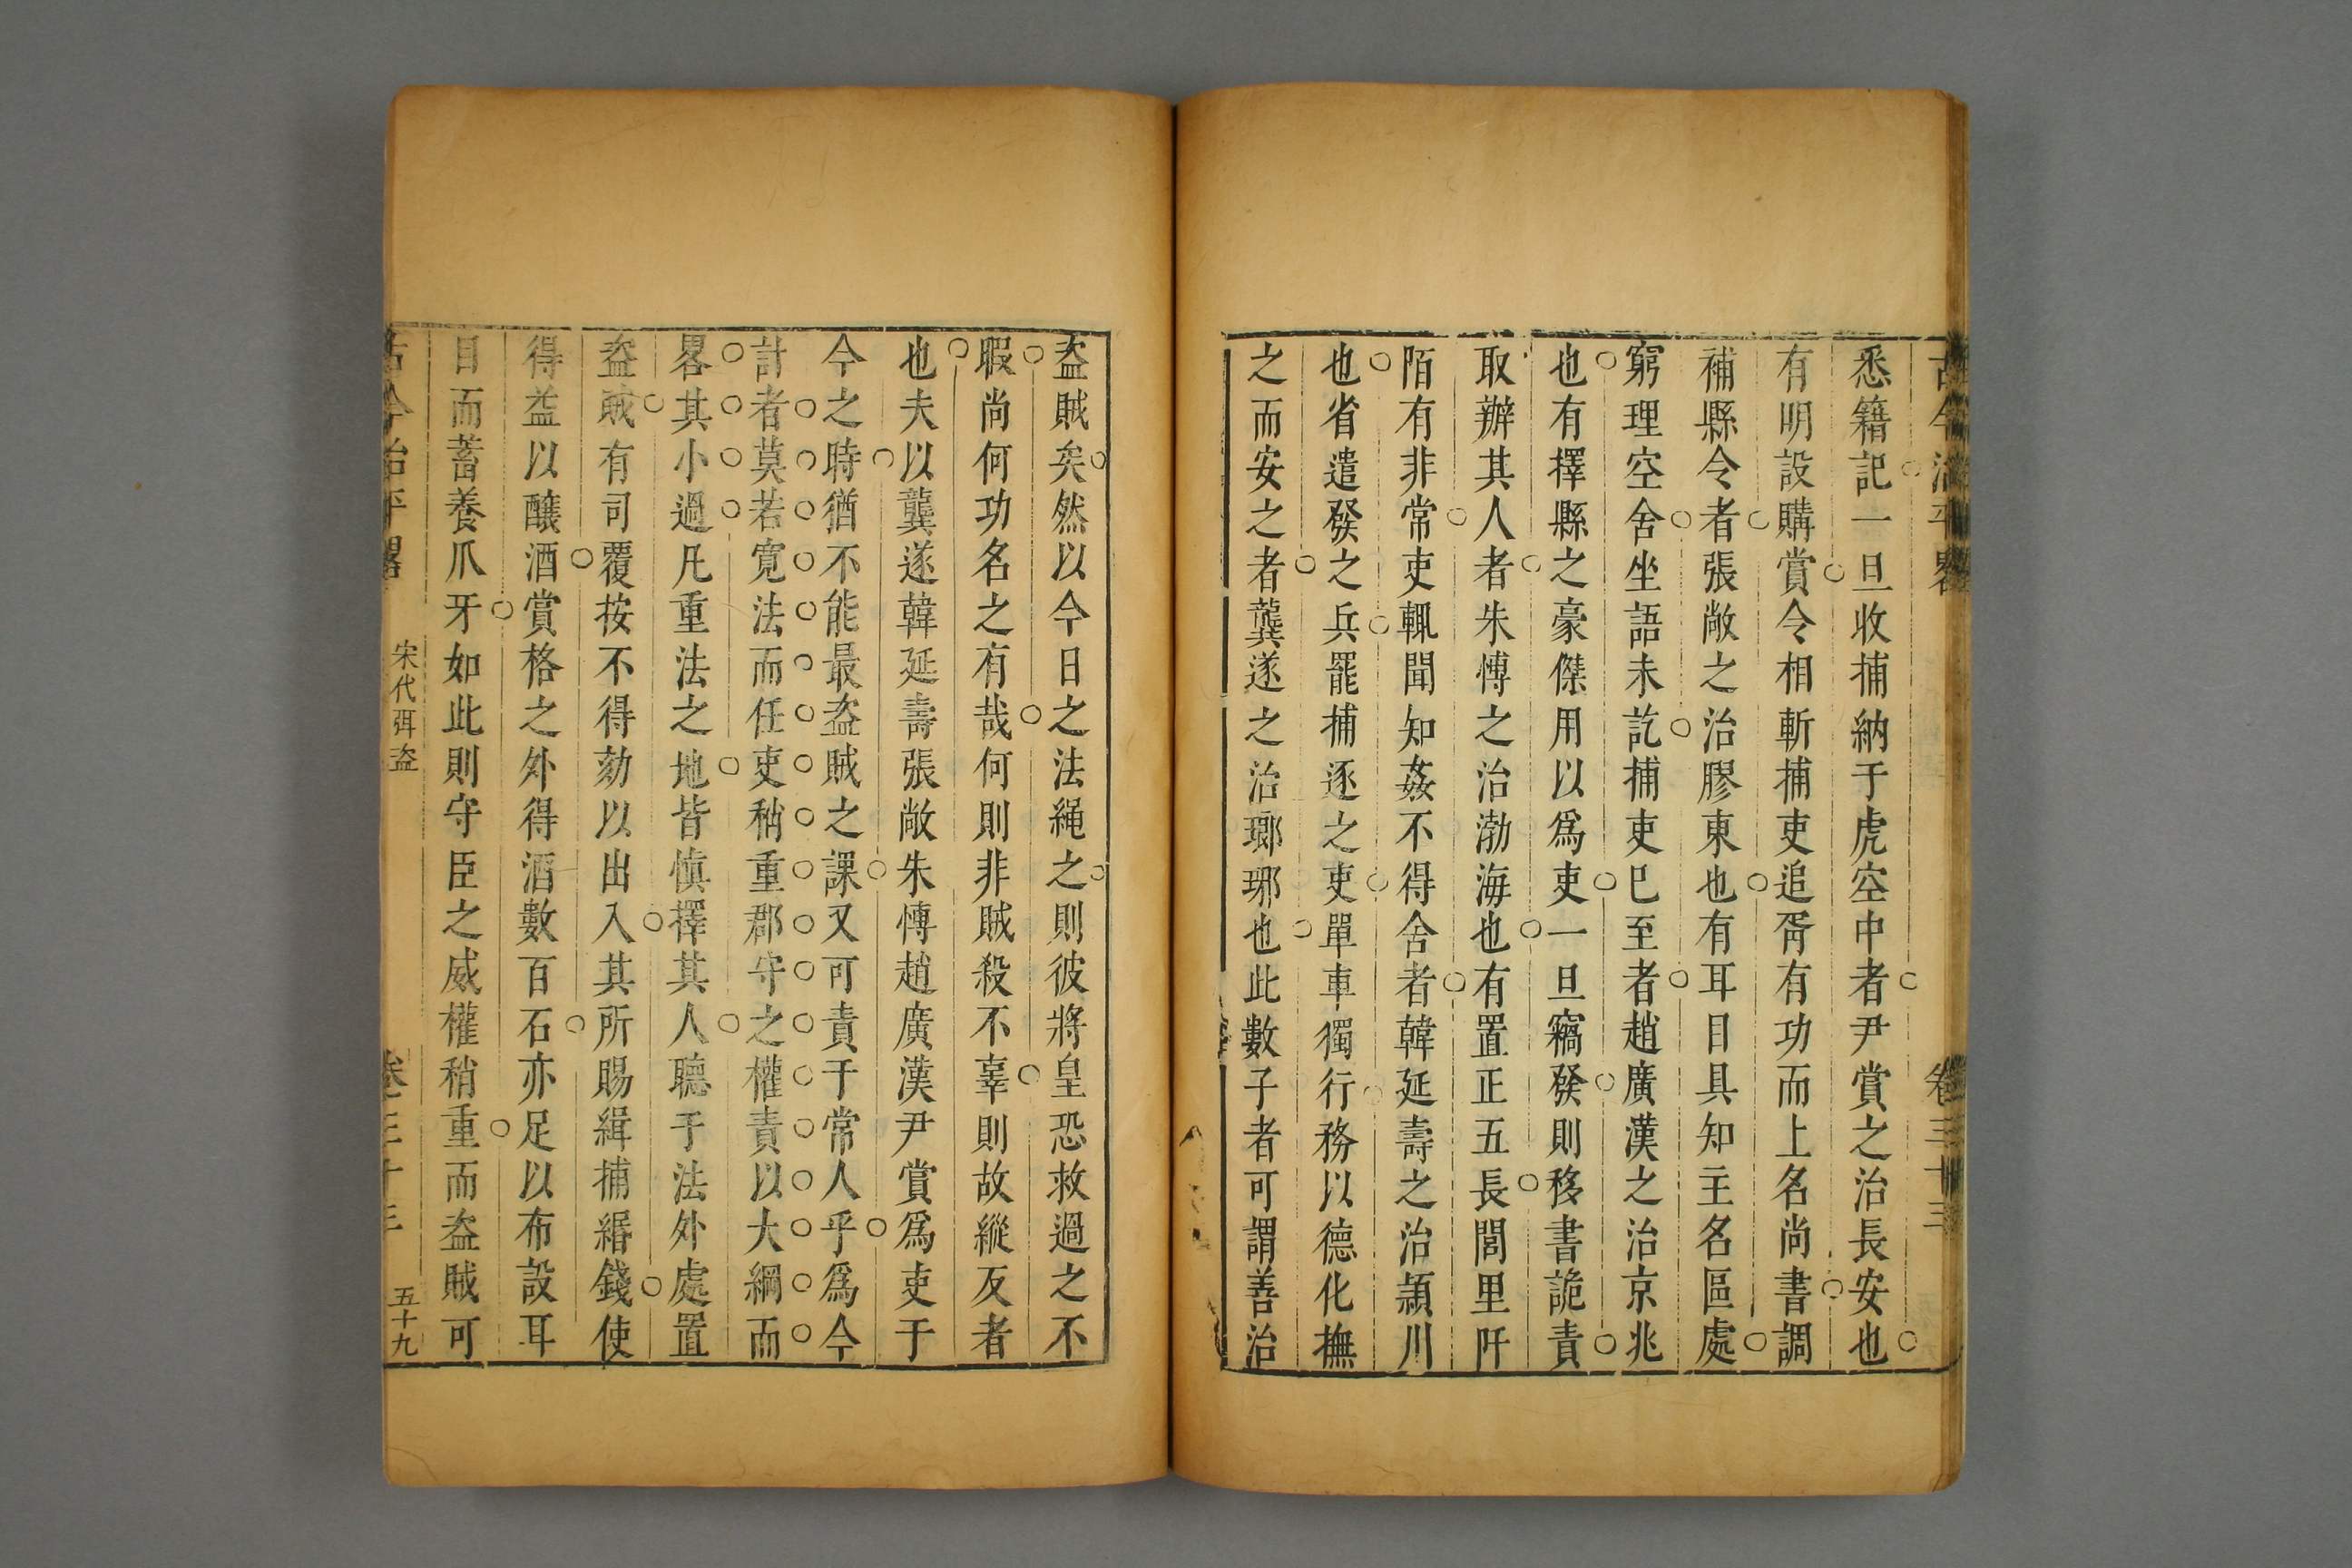 古今治平畧　卷三十三
悉籍記一旦收捕納于虎空中者尹賞之治長安也
有明設購賞令相斬捕吏追胥有功而上名尚書調
補縣令者張敞之治膠東也有耳目具知主名區處
窮理空舍坐語未訖捕吏巳至者趙廣漢之治京兆
也有擇縣之豪傑用以爲吏一旦竊發則移書詭責
取辦其人者朱愽之治渤海也有置正五長閭里阡
陌有非常吏輒聞知姦不得舍者韓延壽之治潁川
也省遣發之兵罷捕逐之吏單車獨行務以德化撫
之而安之者龔遂之治瑯琊也此數子者可謂善治
盜賊矣然以今日之法繩之則彼將皇恐救過之不
暇尚何功名之有哉何則非賊殺不辜則故縱反者
也夫以龔遂韓延壽張敞朱愽趙廣漢尹賞爲吏于
今之時猶不能最盜賊之課又可責于常人乎爲今
計者莫若寛法而任吏稍重郡守之權責以大綱而
畧其小過凡重法之地皆慎擇其人聽于法外處置
盜賊有司覆按不得劾以出入其所賜緝捕緡錢使
得益以釀酒賞格之外得酒數百石亦足以布設耳
目而蓄養爪牙如此則守臣之威權稍重而盜賊可
古今治平畧　宋代弭盜　卷三十三　五十九